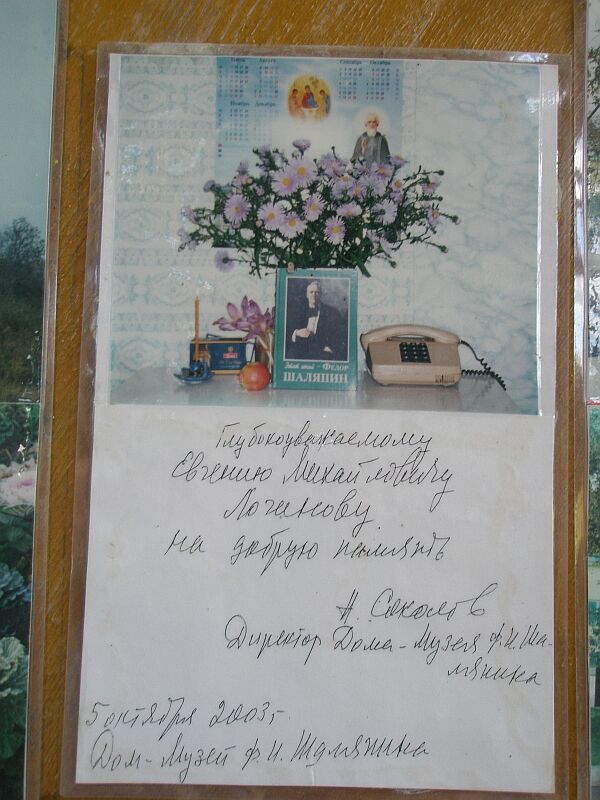 Август
Сентябрь
Октябрь
Ноябрь
Декабрь
Фёдор
ШАЛЯПИН
Глубокоуважаемому
Евгению Михайловичу
Логинову
на добрую память
Н. Соколов
Директор Дома-Музея Ф.И. Ша-
ляпина
5 октября 2003 г.
Дом-Музей Ф.И. Шаляпина